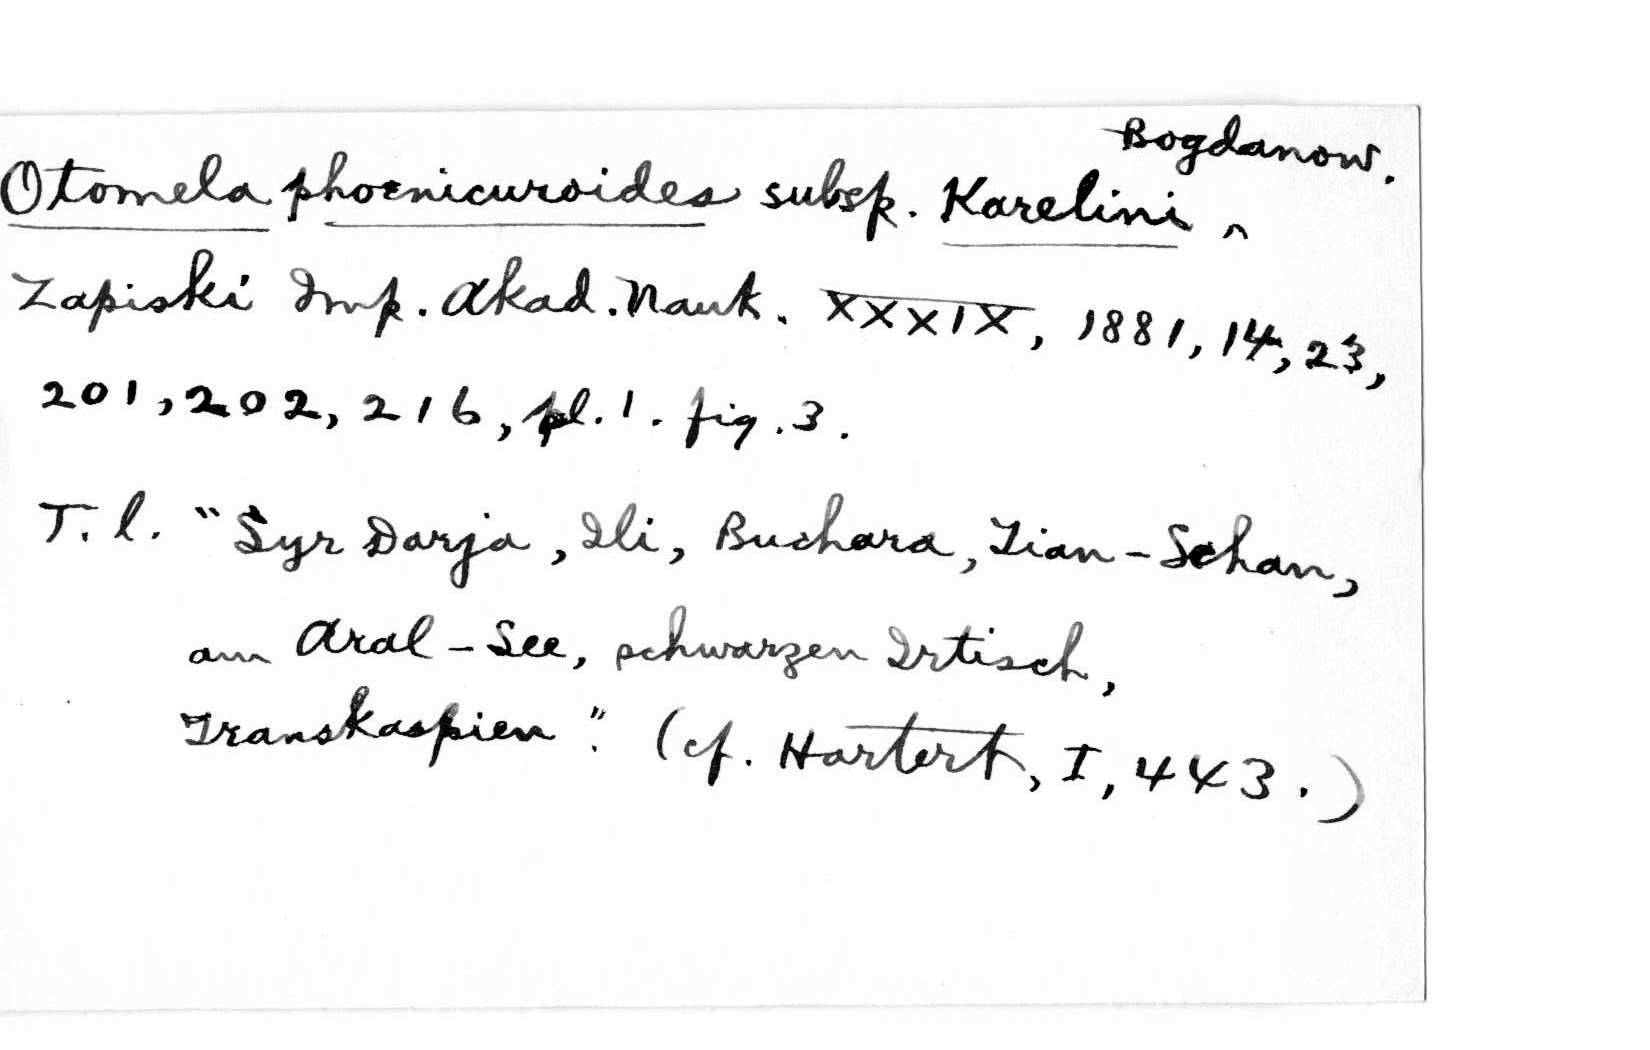 Otomela phoenicuroides subsp. Karelini ^ Bogdanow.
Zapiski Imp. Akad. Nauk. XXXIX, 1881, 14, 23,
201, 202, 216, pl. 1. fig. 3.
T. l. "Syr Darja, Ili, Buchara, Tian-Schan,
am Aral-See, schwarzen Irtisch,
Transkaspien". (cf. Hartert, I, 443.)